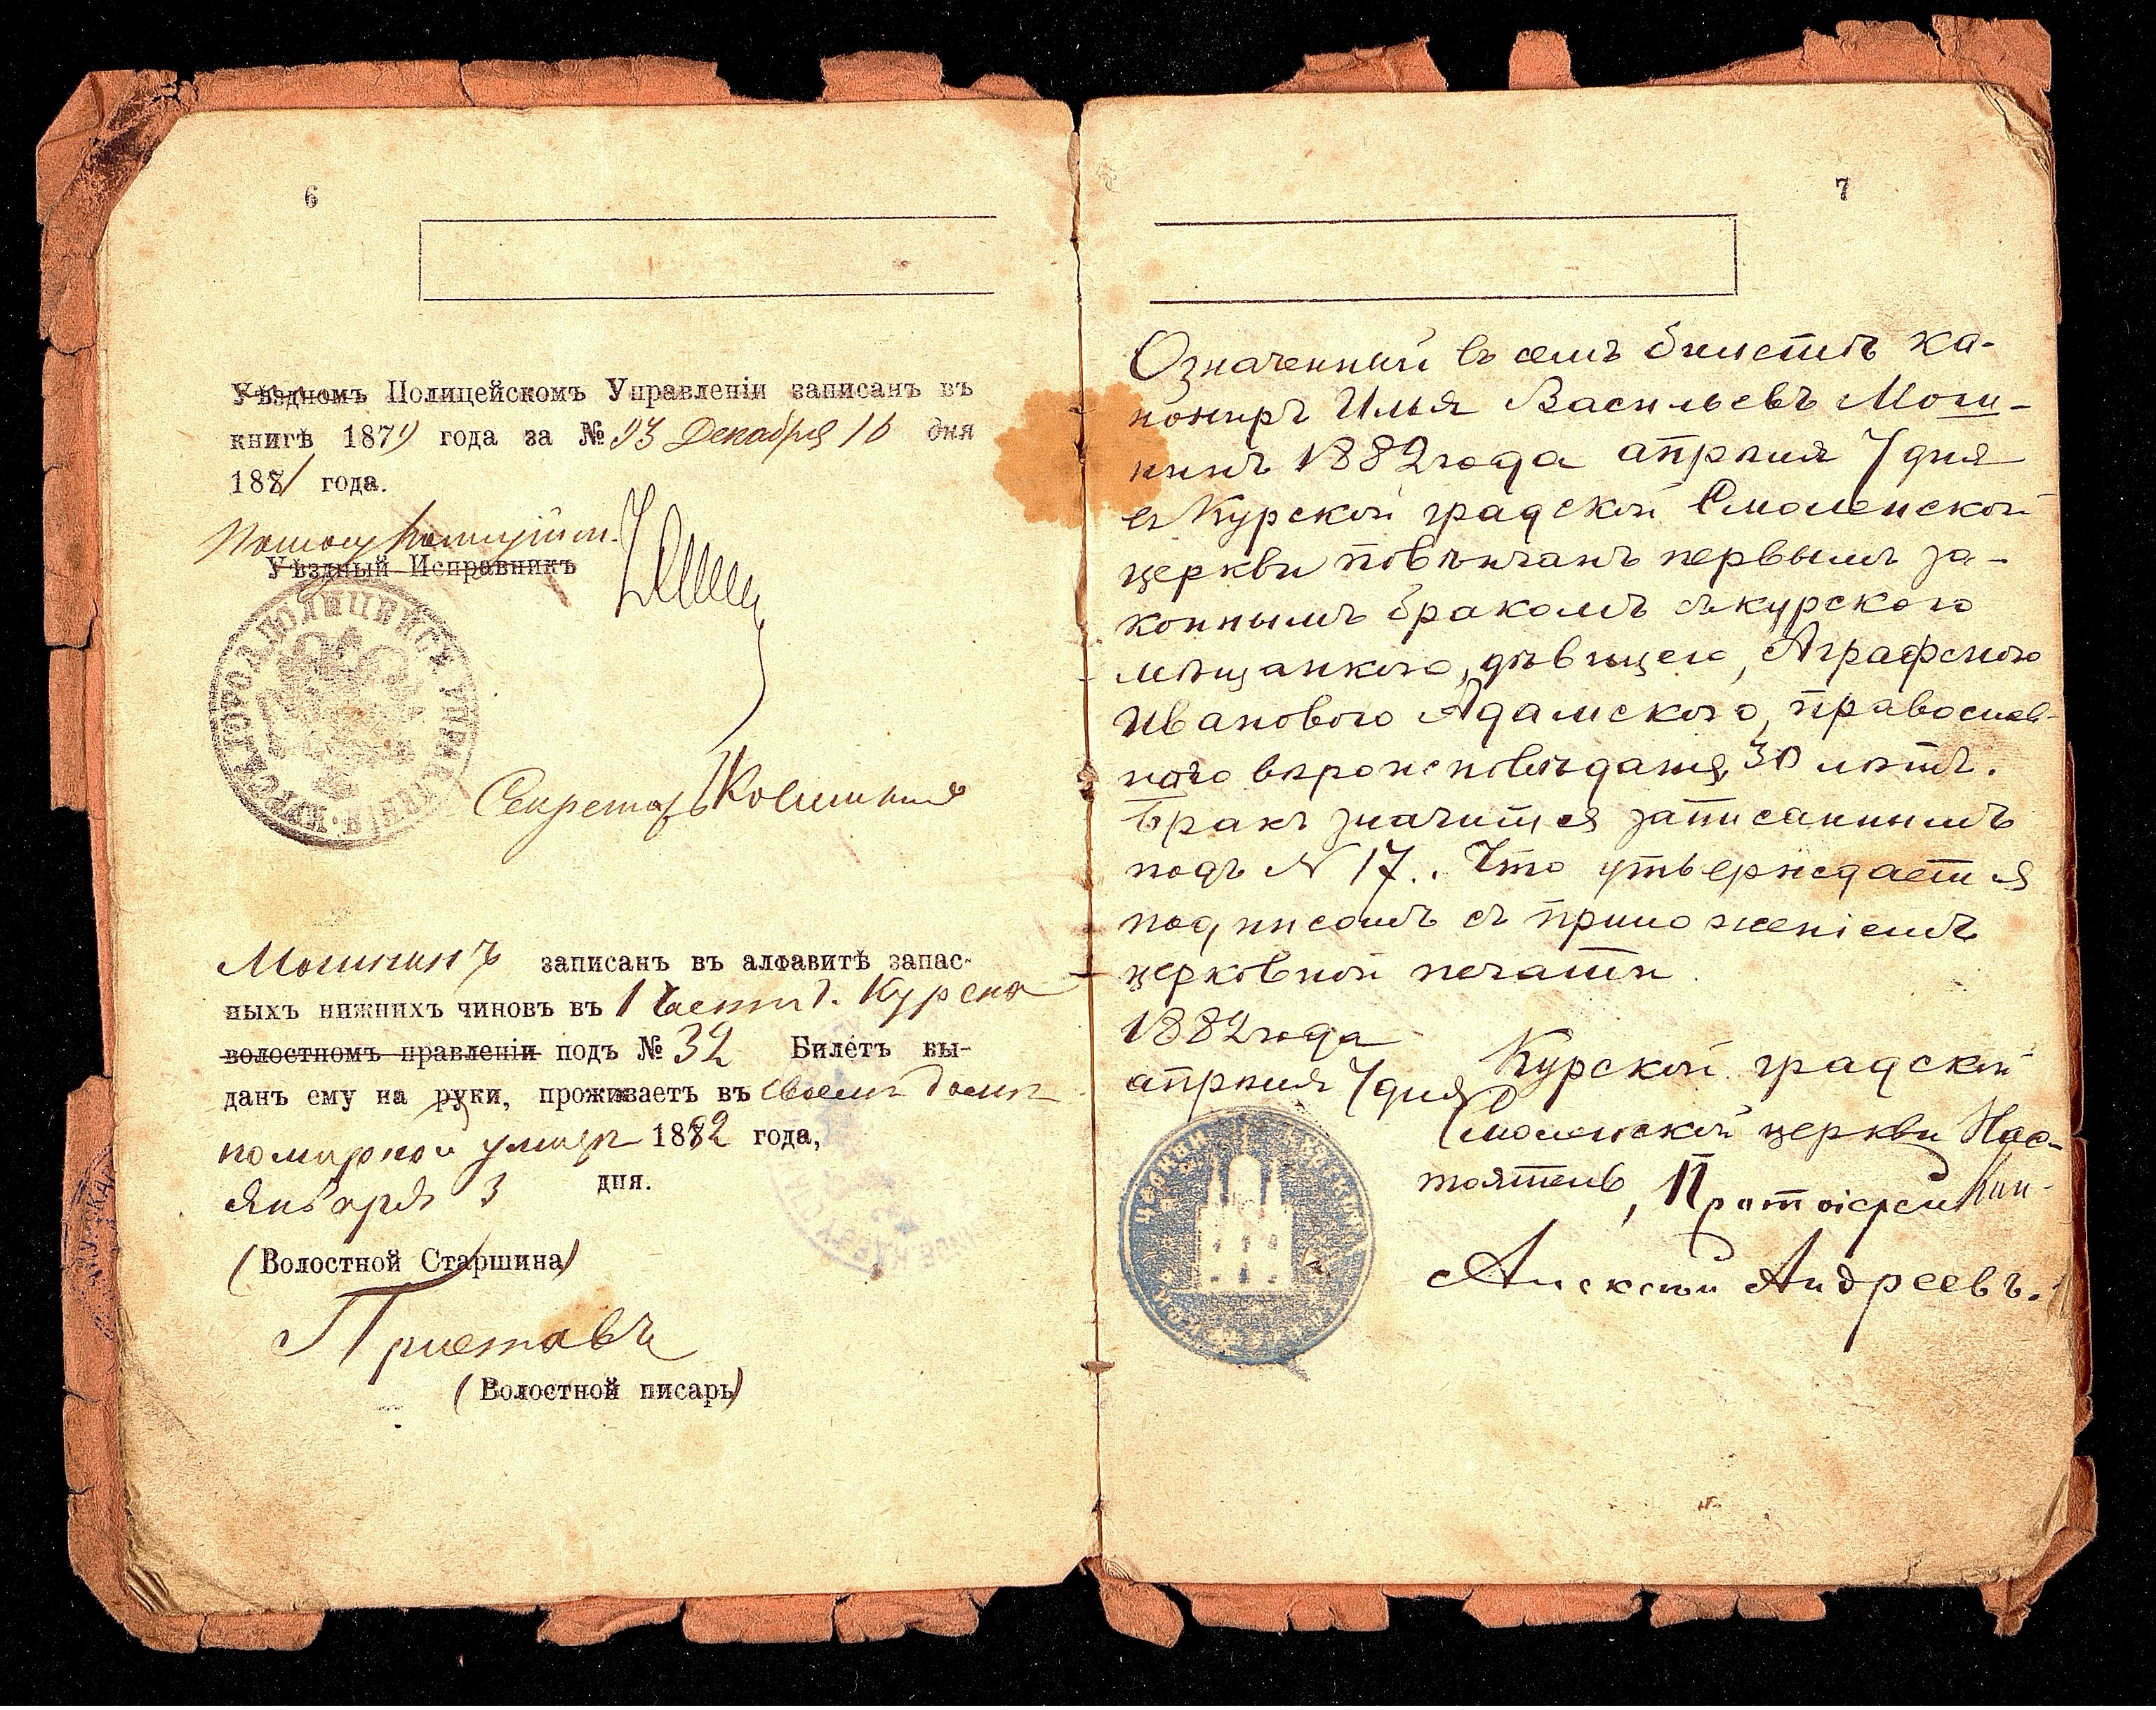 6
Уѣздномъ Полицейскомъ Управленіи записанъ въ
книгѣ 187 года за № 93 Декабря 16 дня
1881 года.
Уѣздный Исправникъ
Секретарь
Мошнинъ записанъ въ алфавитѣ запас-
ныхъ нижнихъ чиновъ въ 1 части г. Курска
волостномъ правленіи подъ № 32 Билетъ вы-
данъ ему на руки, проживаетъ въ своемъ домѣ
улицѣ 1882 года,
Января 3 дня.
(Волостной Старшина)
Приставъ
(Волостной писарь)
7
Означенный въ семъ билетѣ ка-
нониръ Илья Васильевъ Мош-
нинъ 1882 года апрѣля 7 дня
въ Курской градской Смоленской
церкви повѣнчанъ первымъ за-
коннымъ бракомъ съ курскою
мѣщанкою, дѣвицею, Аграфеною
Ивановою Адамскою, православ-
наго вѣроисповѣданія, 30 лѣтъ.
Бракъ значится записаннымъ
подъ N 17. Что утверждается
подписомъ съ приложеніемъ
церковной печати.
1882 года
апрѣля 7 дня
Курской градской
Смоленской церкви Нас-
тоятель, Протоіерей
Алексѣй Андреевъ.